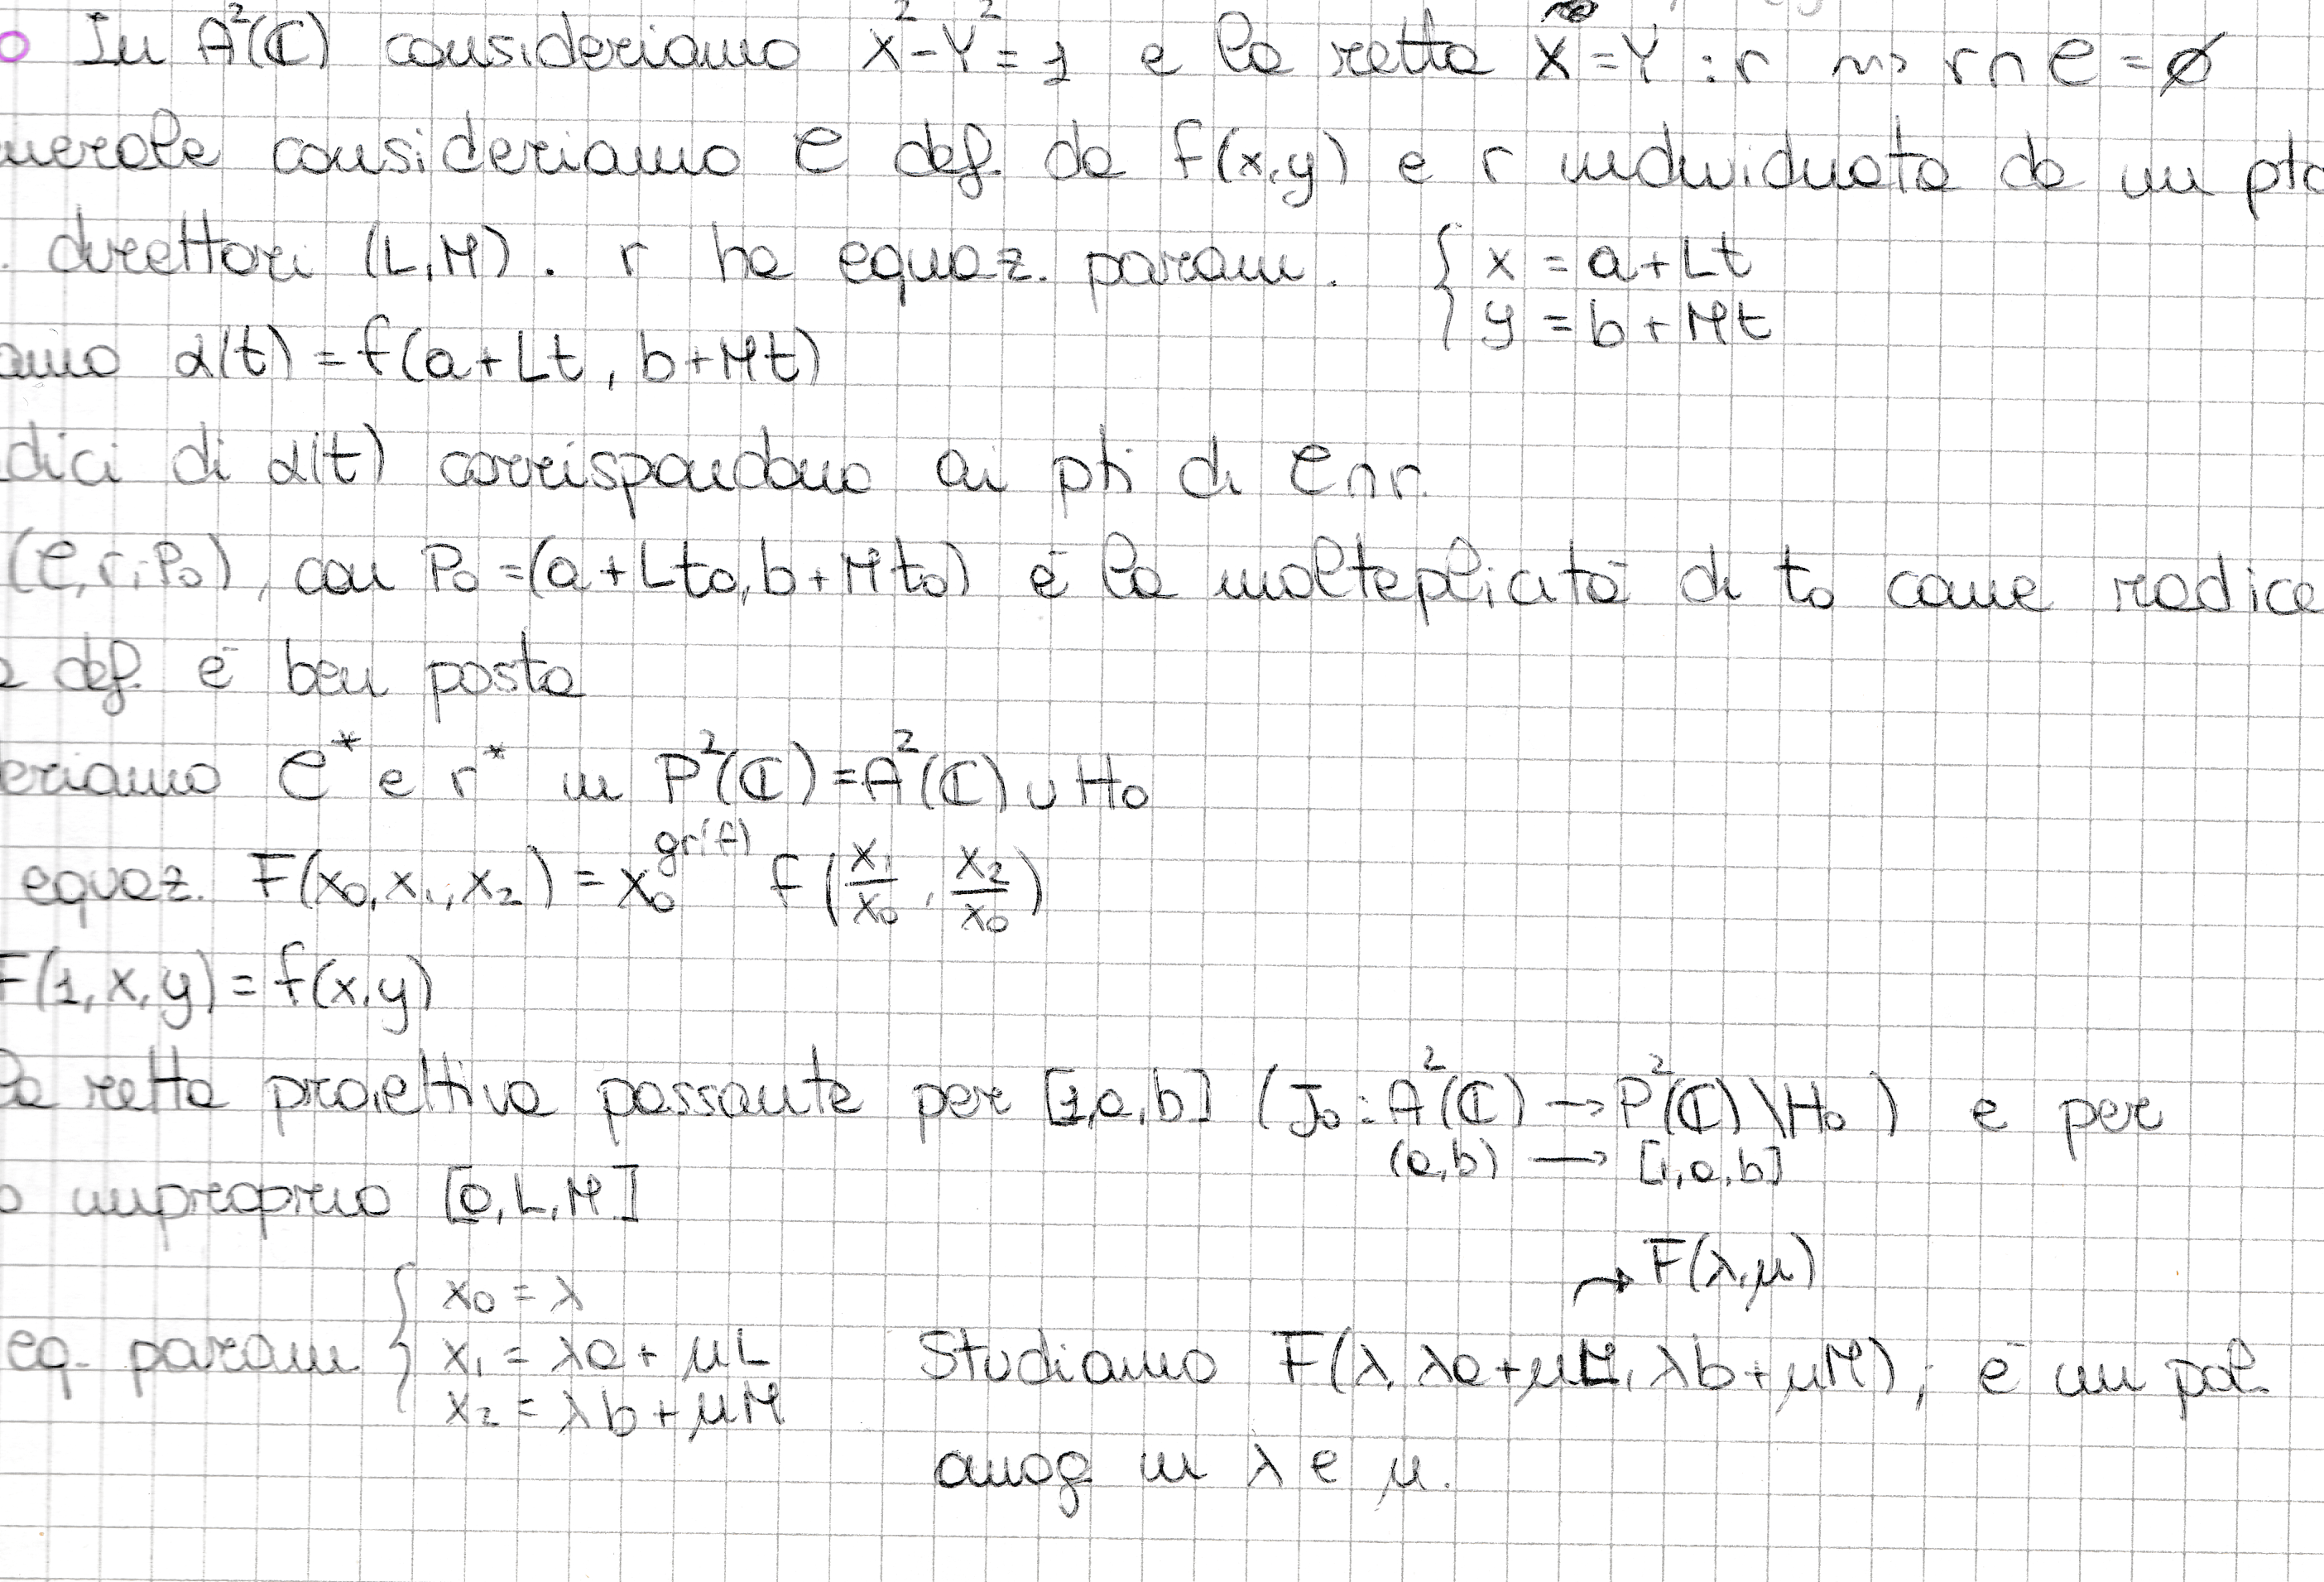 o In A²(ℂ) consideriamo X²-Y²=1 e la retta X=Y : r ⇝ r∩C=∅
nerale consideriamo C def. da f(x,y) e r individuata da un pto
. direttori (L,M). r ha equaz. param. { x = a+Lt
{ y = b+Mt
amo α(t) = f(a+Lt, b+Mt)
dici di α(t) corrispondono ai pti di C∩r.
(C,r,P₀), con P₀=(a+Lt₀, b+Mt₀) è la molteplicità di t₀ come radice
a def. è ben posta
eriamo C* e r* in P²(ℂ)=A²(ℂ)∪H₀
equaz. F(x₀,x₁,x₂) = x₀^gr(f) f(x₁/x₀, x₂/x₀)
F(1,x,y) = f(x,y)
la retta proiettiva passante per [1,a,b] (J₀: A²(ℂ) → P²(ℂ)\H₀) e per
(a,b) → [1,a,b]
o improprio [0,L,M]
→ F(λ,μ)
eq. param { x₀ = λ
x₁ = λa + μL Studiamo F(λ, λa+μL, λb+μM); è un pol.
x₂ = λb + μM
omog in λ e μ.